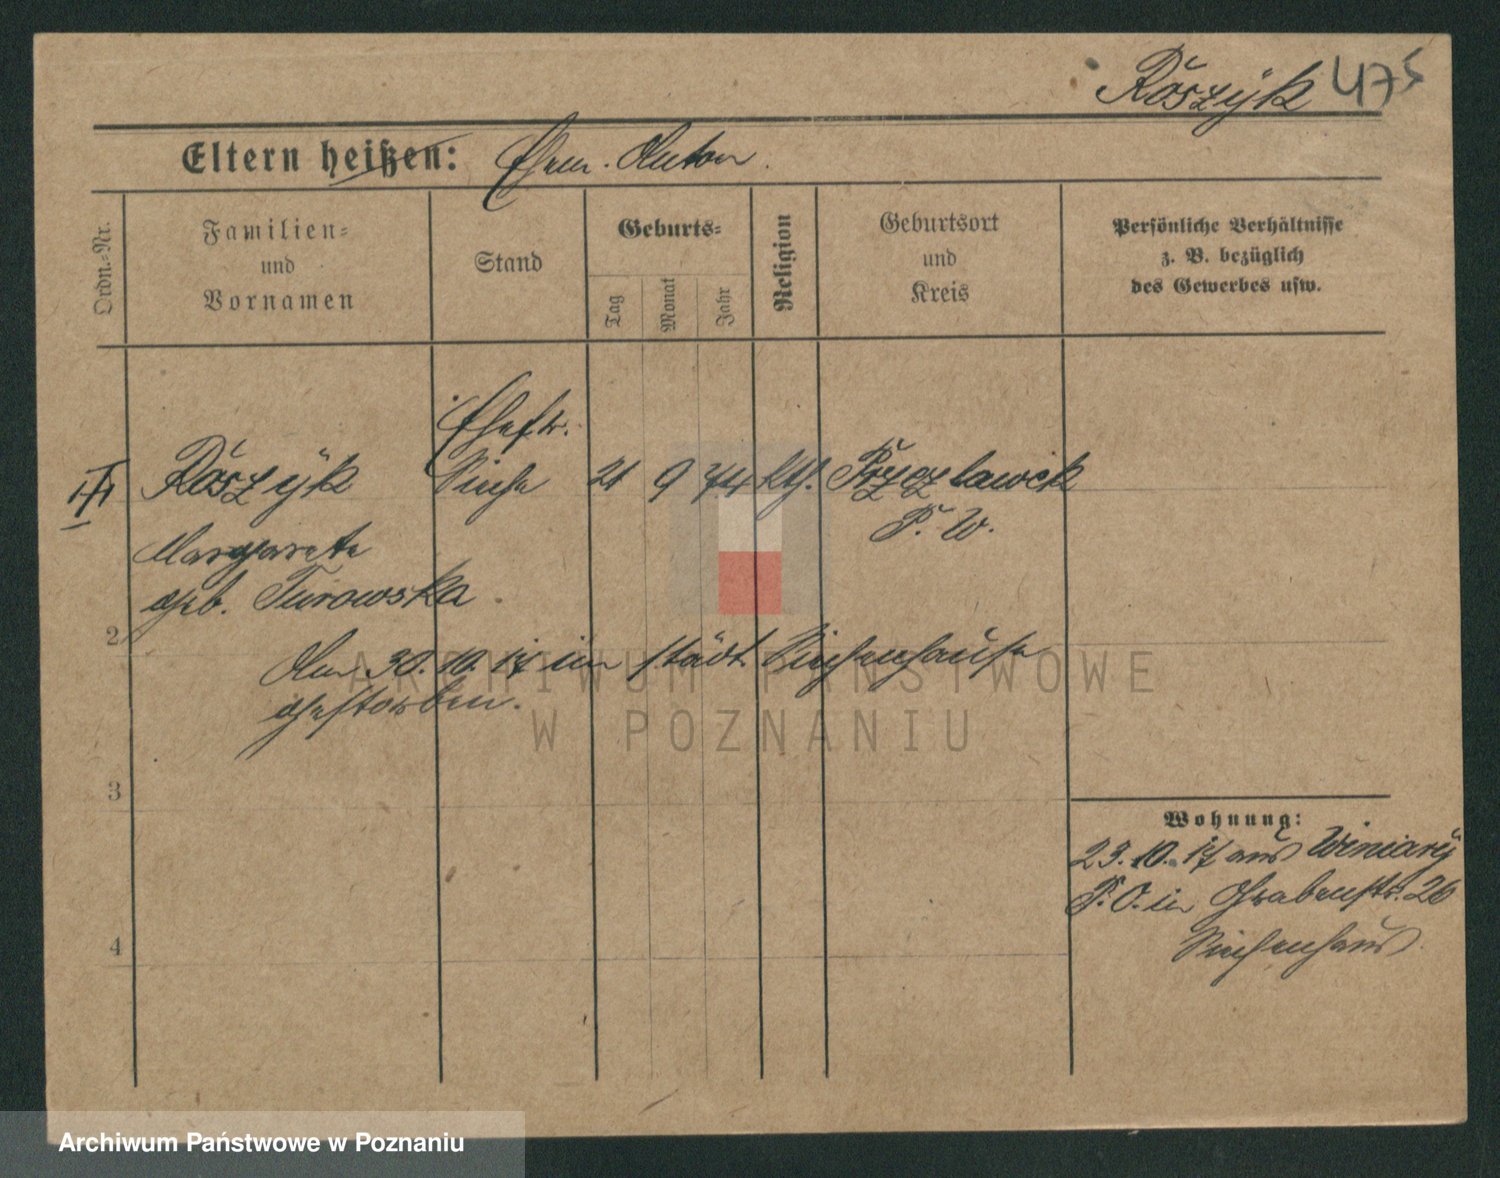 Roszyk 475
Eltern heißen: Ehem. Anton.
Ordn.-Nr.
Familien-
und
Vornamen
Stand
Geburts-
Tag
Monat
Jahr
Religion
Geburtsort
und
Kreis
Persönliche Verhältnisse
z. B. bezüglich
des Gewerbes usw.
Ehefr.
Roszyk Sieche 21 9 74 kth. Przyczlawick
P. W.
Margarete
geb. Turowska
2
Am 30.10.17 im städt. Siechenhause
gestorben.
3
Wohnung:
23.10.17 aus Winiary
P. O. in Grabenstr. 26
Siechenhaus
4
ARCHIWUM PAŃSTWOWE
W POZNANIU
Archiwum Państwowe w Poznaniu